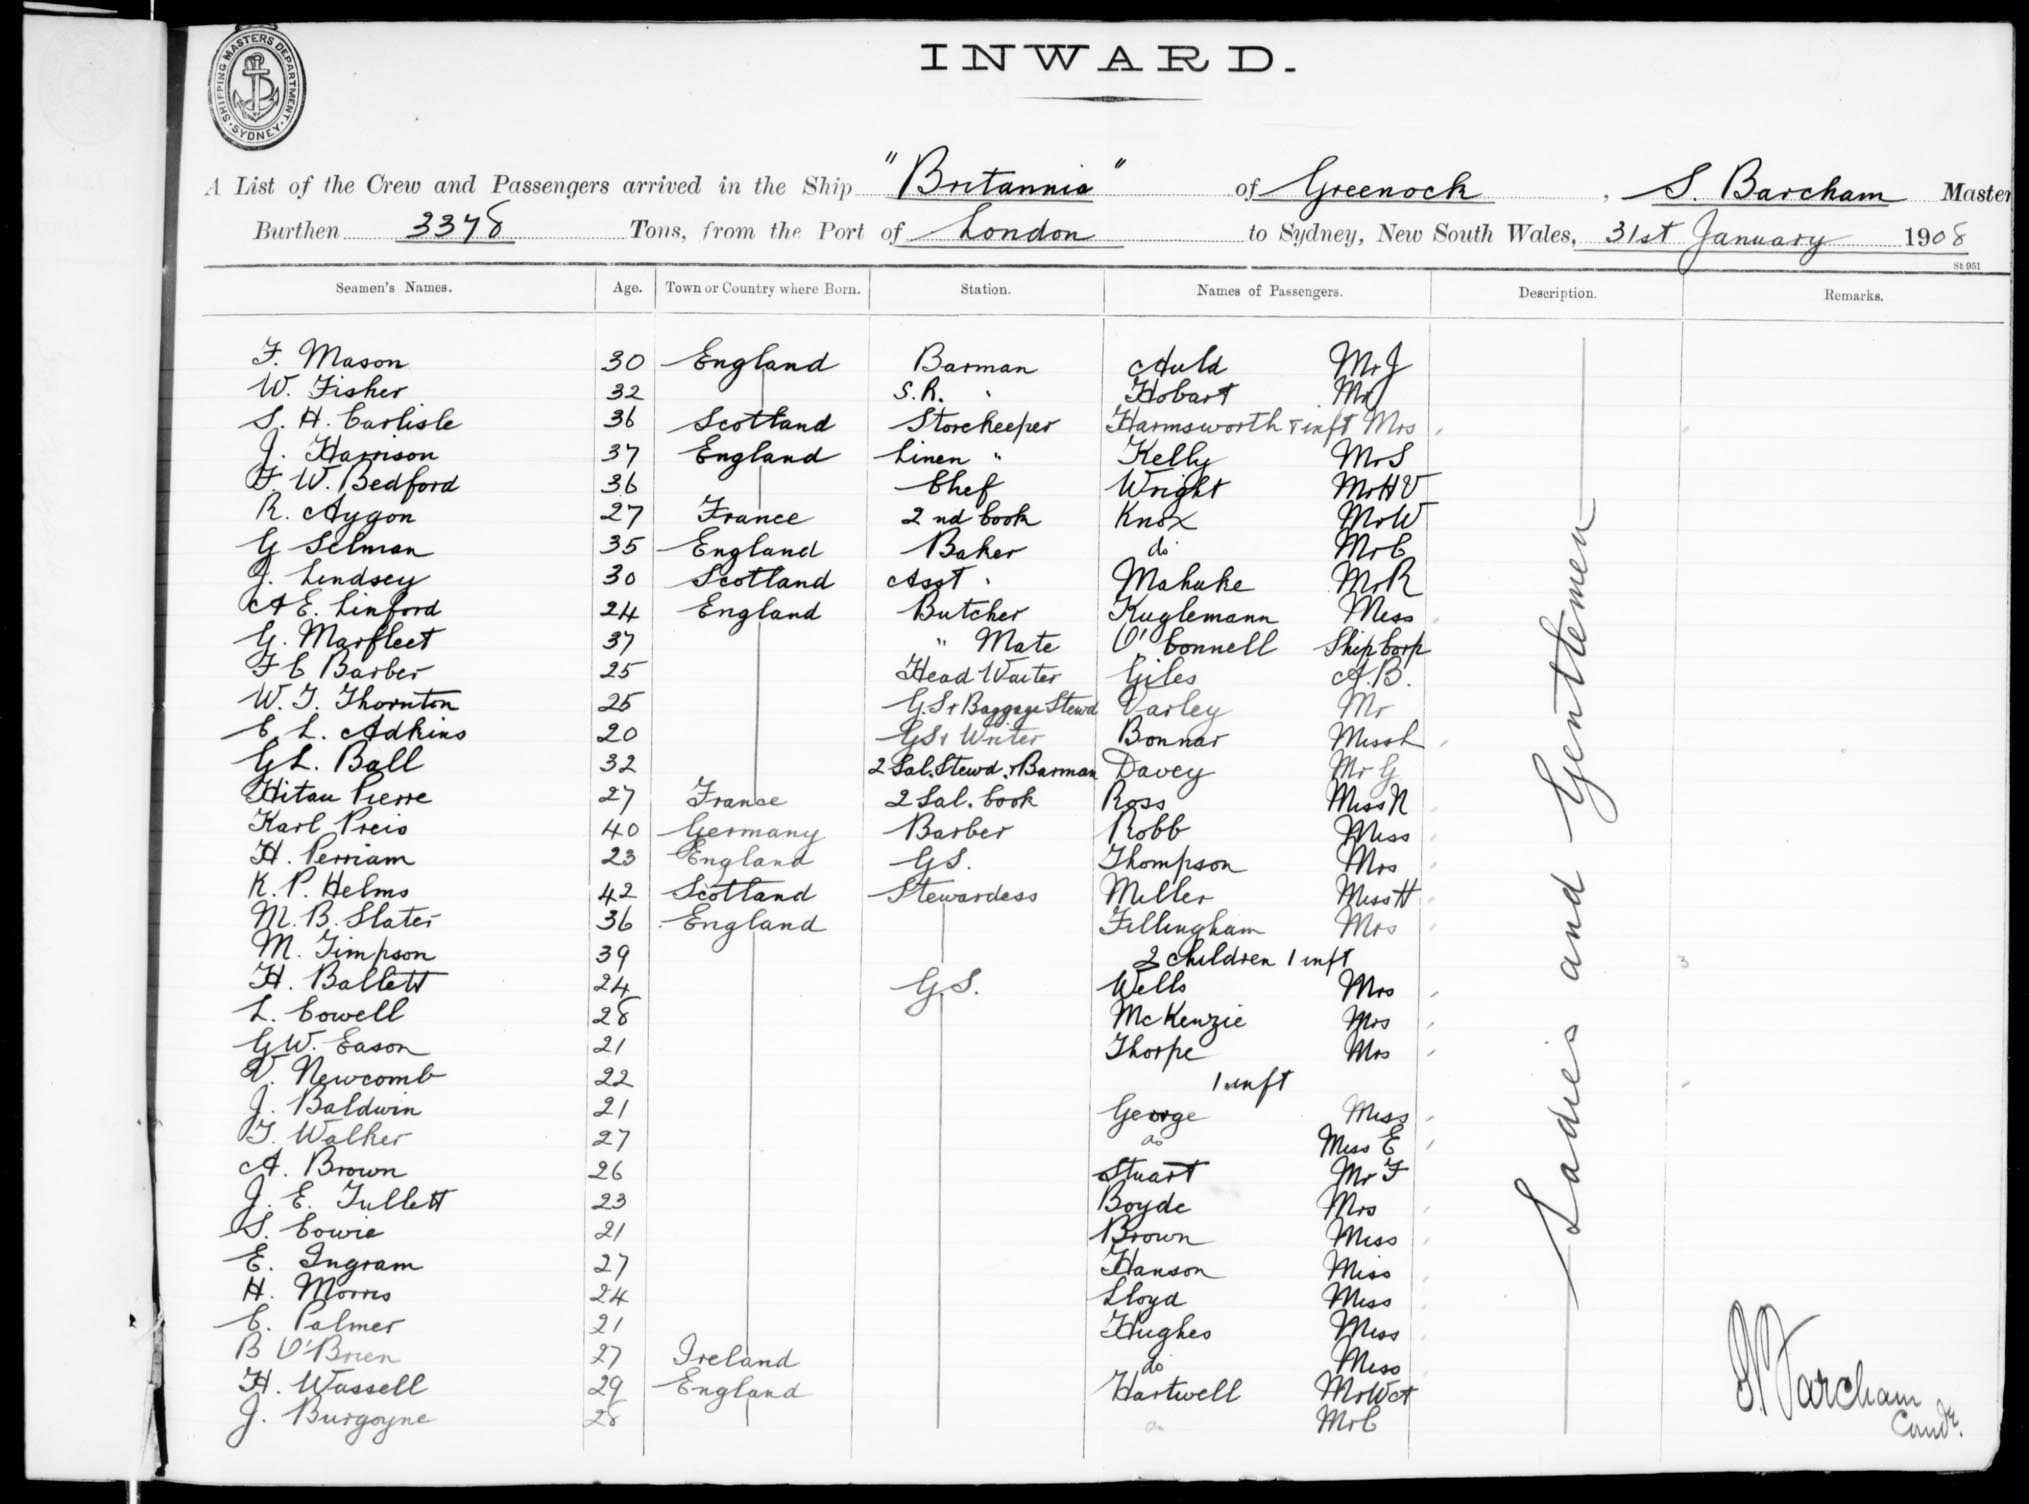 INWARD.
SHIPPING MASTERS DEPARTMENT. SYDNEY
A List of the Crew and Passengers arrived in the Ship "Britannia" of Greenock, S. Barcham Master
Burthen 3378 Tons, from the Port of London to Sydney, New South Wales, 31st January 1908
St 951
Seamen's Names. Age. Town or Country where Born. Station. Names of Passengers. Description. Remarks.
F. Mason 30 England Barman Auld Mr J
W. Fisher 32 S.R. " Hobart Mr J
S. H. Carlisle 36 Scotland Storekeeper Harmsworth & inft Mrs
J. Harrison 37 England Linen " Kelly Mr S
F. W. Bedford 36 Chef Wright Mr H V
R. Aygon 27 France 2nd Cook Knox Mr W
G Selman 35 England Baker do Mr C
J. Lindsey 30 Scotland Asst " Mahuke Mr R
A E. Linford 24 England Butcher Kuglemann Miss
G. Marfleet 37 " Mate O'Connell Ship Corp
F C Barber 25 Head Waiter Giles A.B.
W. T. Thornton 25 G.S & Baggage Stewd Varley Mr
E. L. Adkins 20 GS & Writer Bonnar Miss L
G L. Ball 32 2 Sal. Stewd. & Barman Davey Mr G
Hitau Pierre 27 France 2 Sal. Cook Ross Miss N
Karl Preis 40 Germany Barber Robb Miss
H. Perriam 23 England GS. Thompson Mrs
K. P. Helms 42 Scotland Stewardess Miller Miss H
M. B. Slater 36 England Fillingham Mrs
M. Timpson 39 2 children 1 inft
H. Ballett 24 G.S. Wells Mrs
L. Cowell 28 McKenzie Mrs
G W. Eason 21 Thorpe Mrs
V. Newcomb 22 1 inft
J. Baldwin 21 George Miss
T. Walker 27 do Miss E
A. Brown 26 Stuart Mr F
J. E. Tullett 23 Boyde Mrs
S. Cowie 21 Brown Miss
E. Ingram 27 Hanson Miss
H. Morris 24 Lloyd Miss
C. Palmer 21 Hughes Miss
B O'Brien 27 Ireland do Miss
H. Wassell 29 England Hartwell Mr
J. Burgoyne 28 do Mr C
Ladies and Gentlemen
S Barcham
Comdr.